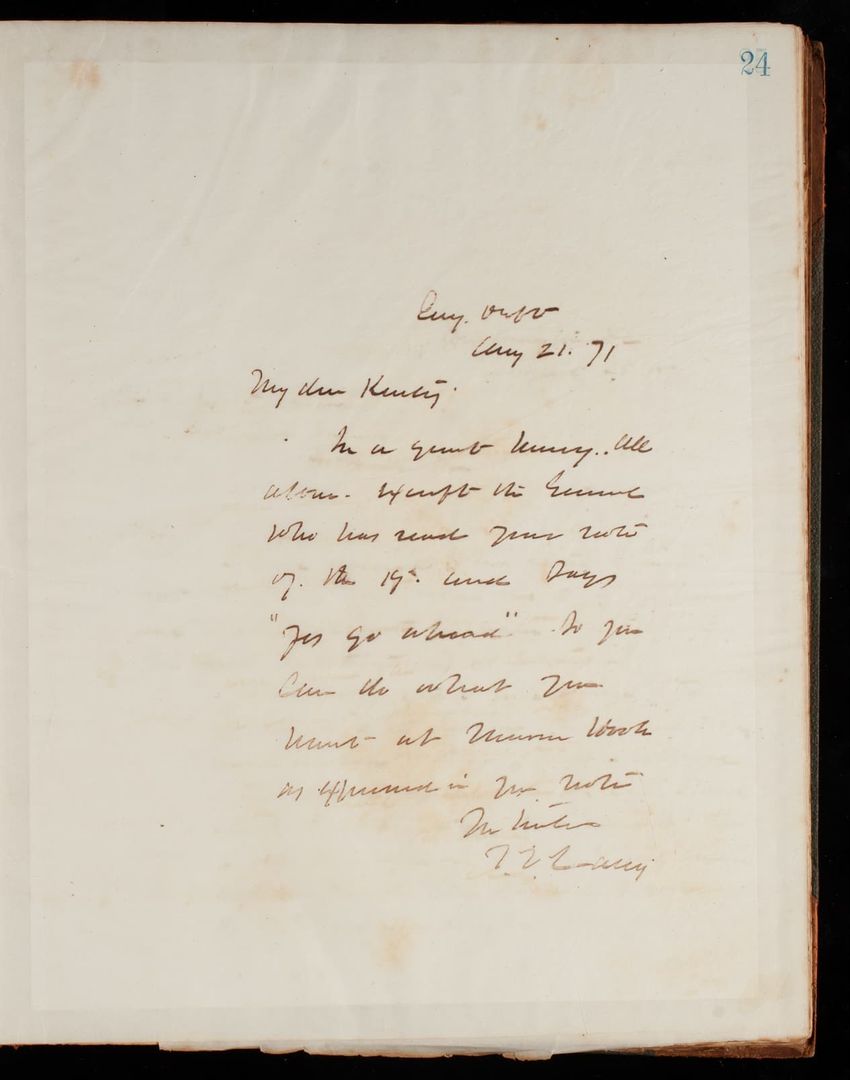 24
Eng. Dept
Aug 21. 71
My dear
In a great hurry. All
alone. Except the General
who has read your note
of the 19. and says
"Yes go ahead" So you
can do what you
want at
as expressed in your note
In haste
T. L. Casey